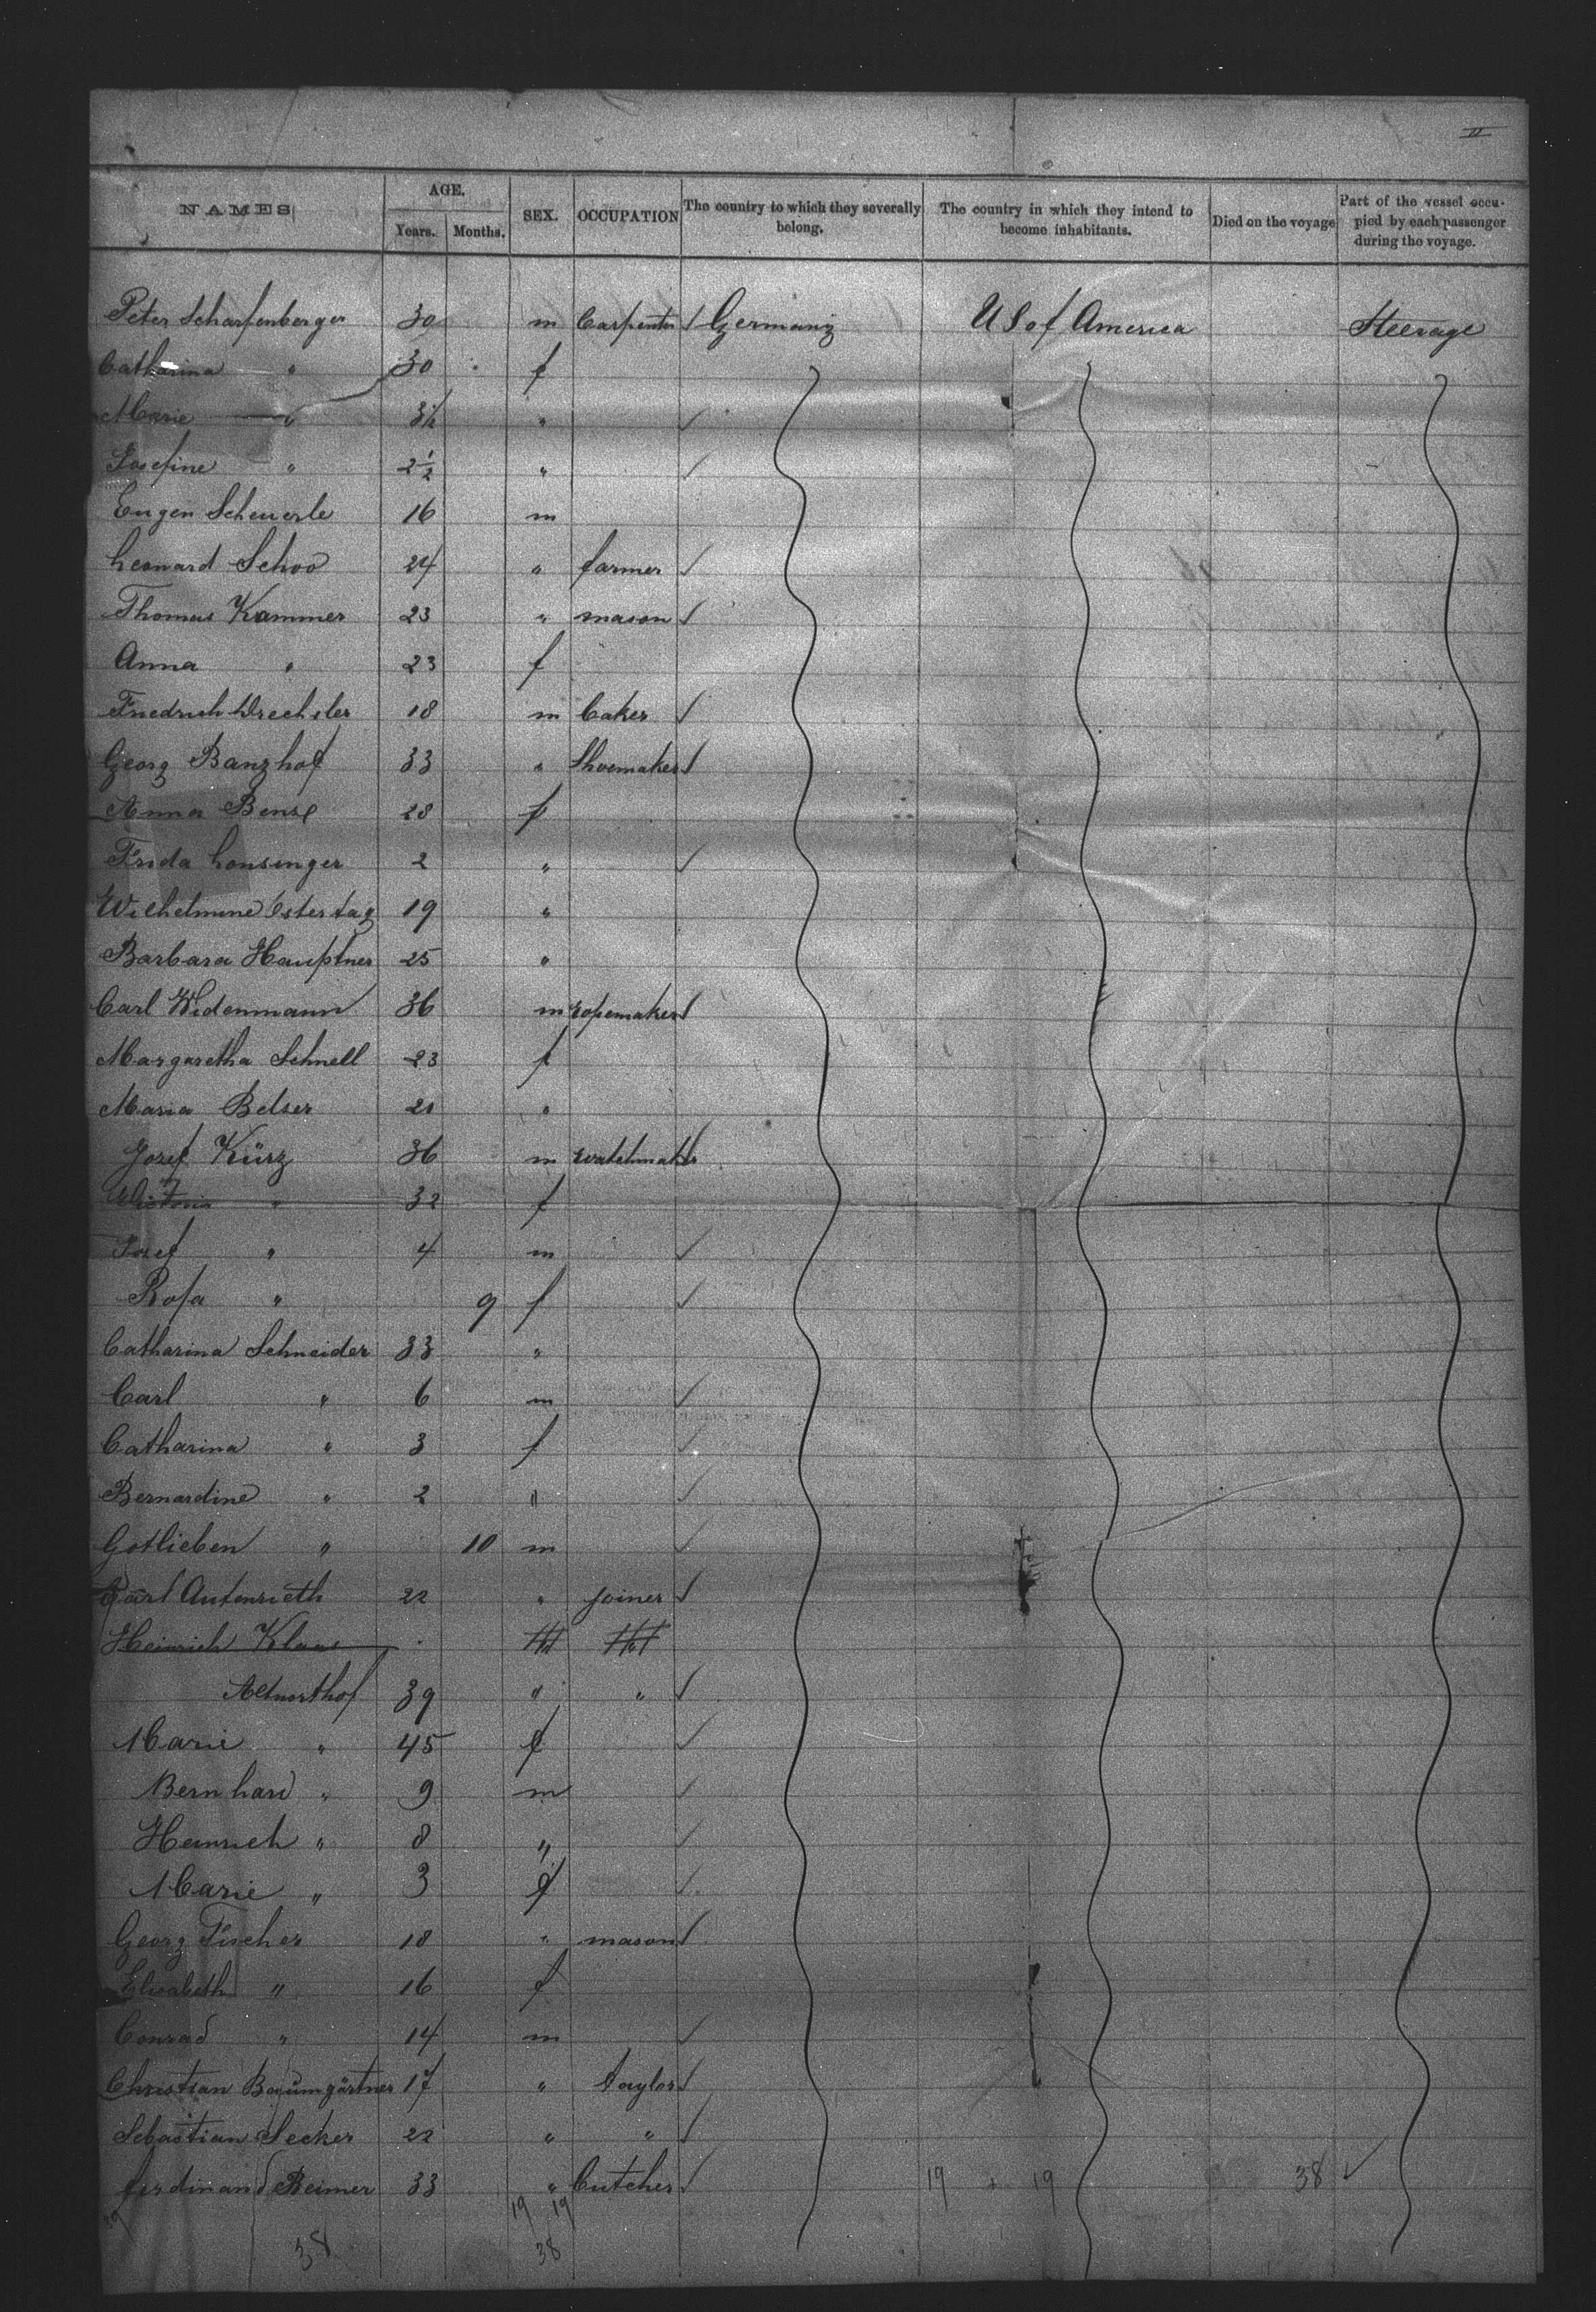 II
NAMES AGE. Years. Months. SEX. OCCUPATION The country to which they severally belong. The country in which they intend to become inhabitants. Died on the voyage Part of the vessel occupied by each passenger during the voyage.
Peter Scharfenberger 30 m Carpenter Germany U S of America Steerage
Catharina " 30 f
Marie " 3½ "
Josefine " 2½ "
Eugen Scheuerle 16 m
Leonard Schoo 24 " farmer
Thomas Kammer 23 " mason
Anna " 23 f
Friedrich Drechsler 18 m baker
Georg Banzhof 33 " Shoemaker
Anna Bense 28 f
Frida Lonsinger 2 "
Wilhelmine Estertag 19 "
Barbara Hauptner 25 "
Carl Widenmann 36 m ropemaker
Margaretha Schnell 23 f
Maria Belser 21 "
Josef Kürz 36 m watchmaker
" 32 f
Josef " 4 m
Rosa " 9 f
Catharina Schneider 33 "
Carl " 6 m
Catharina " 3 f
Bernardine " 2 "
Gotlieben " 10 m
Carl Autenrieth 22 " joiner
Heinrich Klaus
39 " "
Marie " 45 f
Bernhard " 9 m
Heinrich " 8 "
Marie " 3 f
Georg Fischer 18 " mason
Elisabeth " 16 f
Conrad " 14 m
Christian Baumgärtner 17 " taylor
Sebastian Secker 22 " "
ferdinand Reimer 33 " butcher 19 + 19 38
19 19
38 38